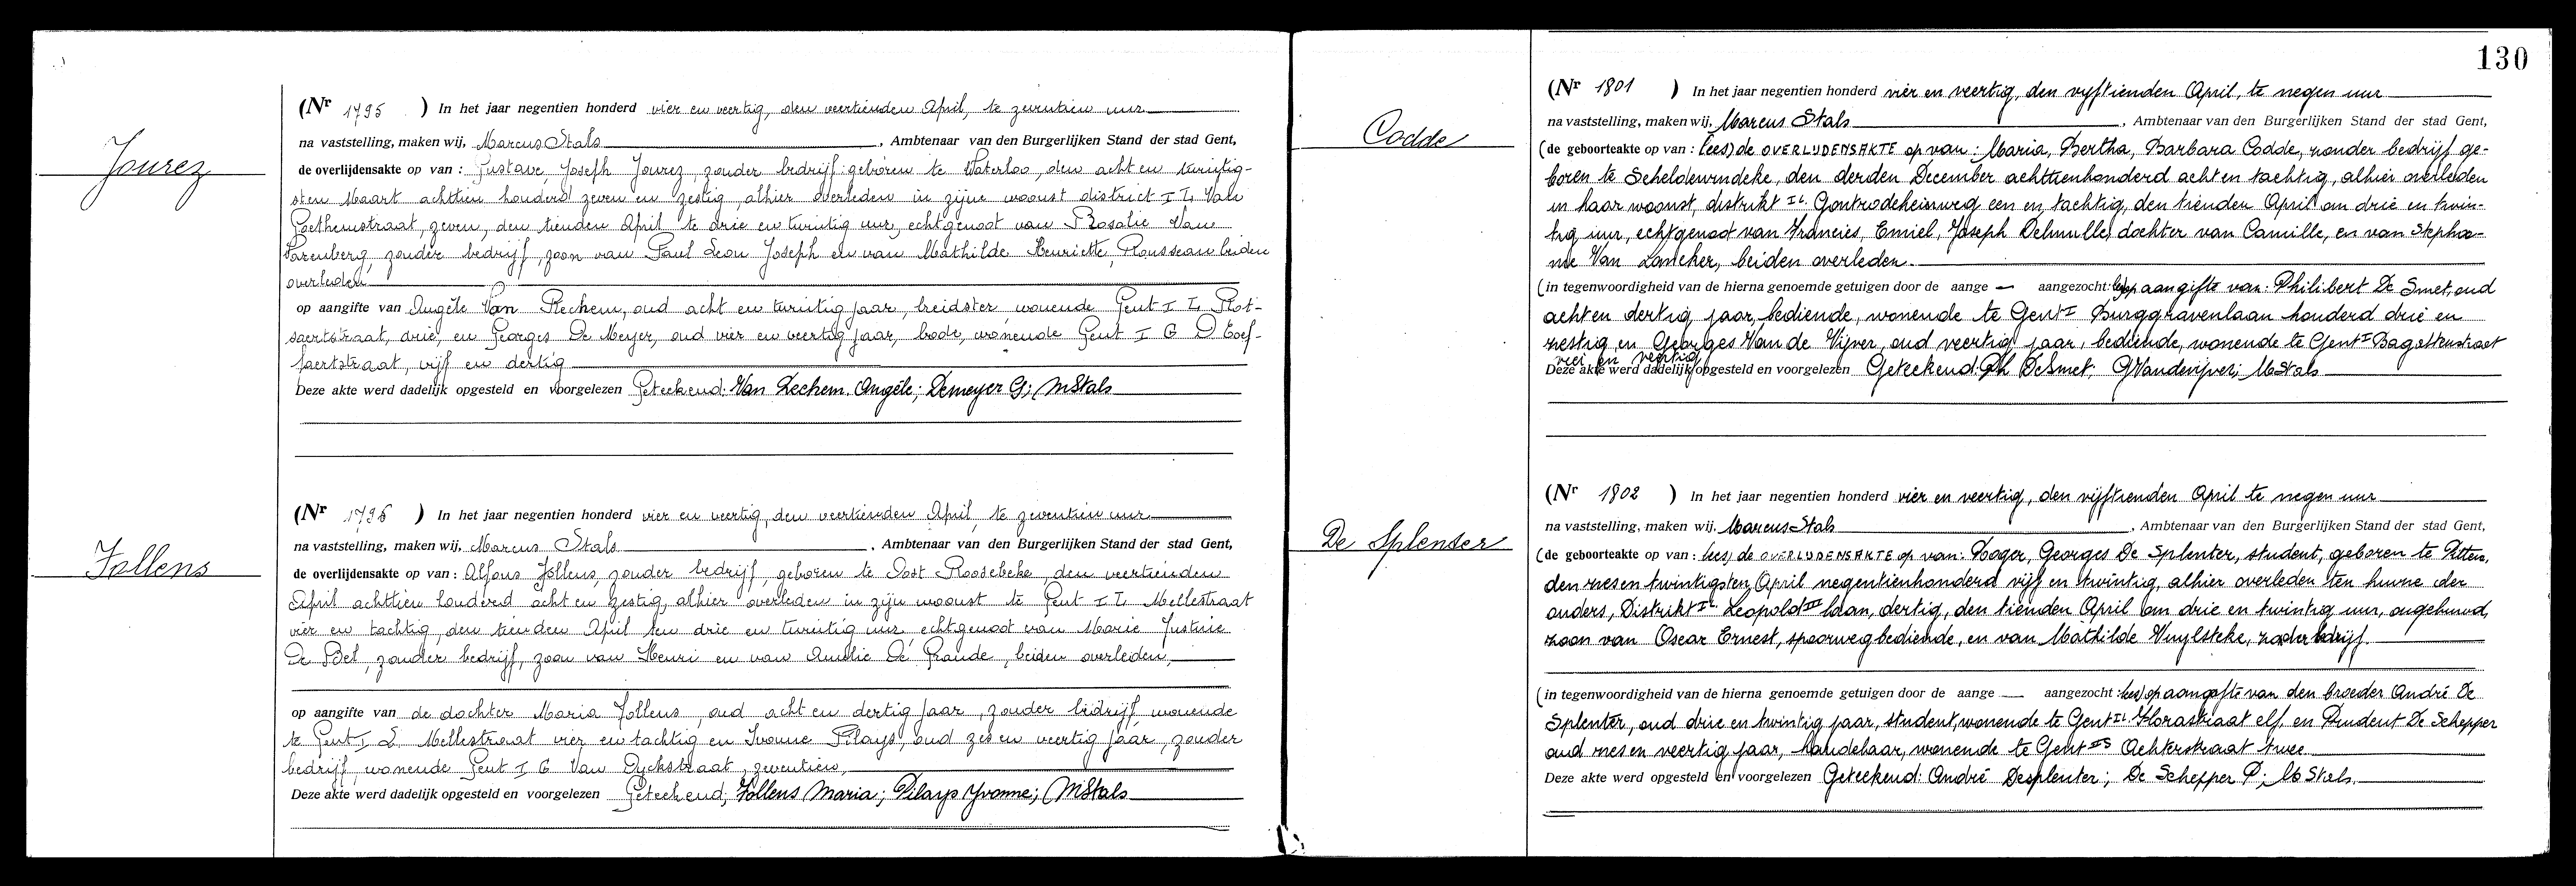 Jourez
(Nr 1795 ) In het jaar negentien honderd vier en veertig, den veertienden April, te zeventien uur
na vaststelling, maken wij, Marcus Stals, Ambtenaar van den Burgerlijken Stand der stad Gent,
de overlijdensakte op van : Gustave Joseph Jourez, zonder bedrijf geboren te Waterloo, den acht en twintig-
sten Maart achttien honderd zeven en zestig, alhier overleden in zijne woonst district I L Van
Goethemstraat, zeven, den tienden April te drie en twintig uur, echtgenoot van Rosalie Van
Parenberg, zonder bedrijf, zoon van Paul Leon Joseph en van Mathilde Henriette, Rousseau beiden
overleden
op aangifte van Angèle Van Rechem, oud acht en twintig jaar, breidster, wonende Gent I L
saertstraat, drie, en Georges De Meyer, oud vier en veertig jaar, bode, wonende Gent I G
faertstraat, vijf en dertig
Deze akte werd dadelijk opgesteld en voorgelezen Geteekend: Van Rechem. Angèle; Demeyer G; MStals
Follens
(Nr 1796 ) In het jaar negentien honderd vier en veertig, den veertienden April, te zeventien uur
na vaststelling, maken wij, Marcus Stals, Ambtenaar van den Burgerlijken Stand der stad Gent,
de overlijdensakte op van : Alfons Follens, zonder bedrijf, geboren te Oost Roosebeke, den veertienden
April achttien honderd acht en zestig, alhier overleden in zijn woonst te Gent I L Mellestraat
vier en tachtig, den tienden April ten drie en twintig uur, echtgenoot van Marie Justine
De Bel, zonder bedrijf, zoon van Henri en van Amelie De Graude, beiden overleden,
op aangifte van de dochter Maria Follens, oud acht en dertig jaar, zonder bedrijf, wonende
te Gent I L Mellestraat vier en tachtig en Ivonne Pilays, oud zes en veertig jaar, zonder
bedrijf, wonende Gent I G Van Dyckstraat, zeventien,
Deze akte werd dadelijk opgesteld en voorgelezen Geteekend; Follens Maria; Pilays Yvonne; MStals
130
Codde
(Nr 1801 ) In het jaar negentien honderd vier en veertig, den vyftienden April, te negen uur
na vaststelling, maken wij, Marcus Stals, Ambtenaar van den Burgerlijken Stand der stad Gent,
(de geboorteakte op van : lees) de OVERLIJDENSAKTE op van : Maria, Bertha, Barbara Codde, zonder bedrijf ge-
boren te Scheldewindeke, den derden December achttienhonderd acht en tachtig, alhier overleden
in haar woonst, distrikt IL Gontrodeheirweg een en tachtig, den tienden April om drie en twin-
tig uur, echtgenoot van Francies, Emiel, Joseph Delmulle, dochter van Camille, en van Stepha-
nie Van Lancker, beiden overleden.
(in tegenwoordigheid van de hierna genoemde getuigen door de aange — aangezocht: lees) op aangifte van: Philibert De Smet, oud
acht en dertig jaar, bediende, wonende te Gent I Burggravenlaan honderd drie en
zestig, en Georges Van de Vijver, oud veertig jaar, bediende, wonende te Gent I Bagattenstraat
vier en veertig
Deze akte werd dadelijk opgesteld en voorgelezen Geteekend: Ph DeSmet; GVandevijver; MStals
De Splenter
(Nr 1802 ) In het jaar negentien honderd vier en veertig, den vijftienden April te negen uur
na vaststelling, maken wij. Marcus Stals, Ambtenaar van den Burgerlijken Stand der stad Gent,
(de geboorteakte op van : lees) de OVERLIJDENSAKTE op van: Roger, Georges De Splenter, student, geboren te Pittem,
den zes en twintigsten April negentienhonderd vijf en twintig, alhier overleden ten huize der
ouders, Distrikt IL Leopold III laan, dertig, den tienden April om drie en twintig uur, ongehuwd,
zoon van Oscar Ernest, spoorwegbediende, en van Mathilde Vuylsteke, zonder bedrijf.
(in tegenwoordigheid van de hierna genoemde getuigen door de aange — aangezocht : lees) op aangifte van den broeder André De
Splenter, oud drie en twintig jaar, student, wonende te Gent IL Florastraat elf, en Prudent De Schepper
oud zes en veertig jaar, handelaar, wonende te Gent IS Achterstraat twee
Deze akte werd opgesteld en voorgelezen Geteekend: André Desplenter; De Schepper P; M Stals.